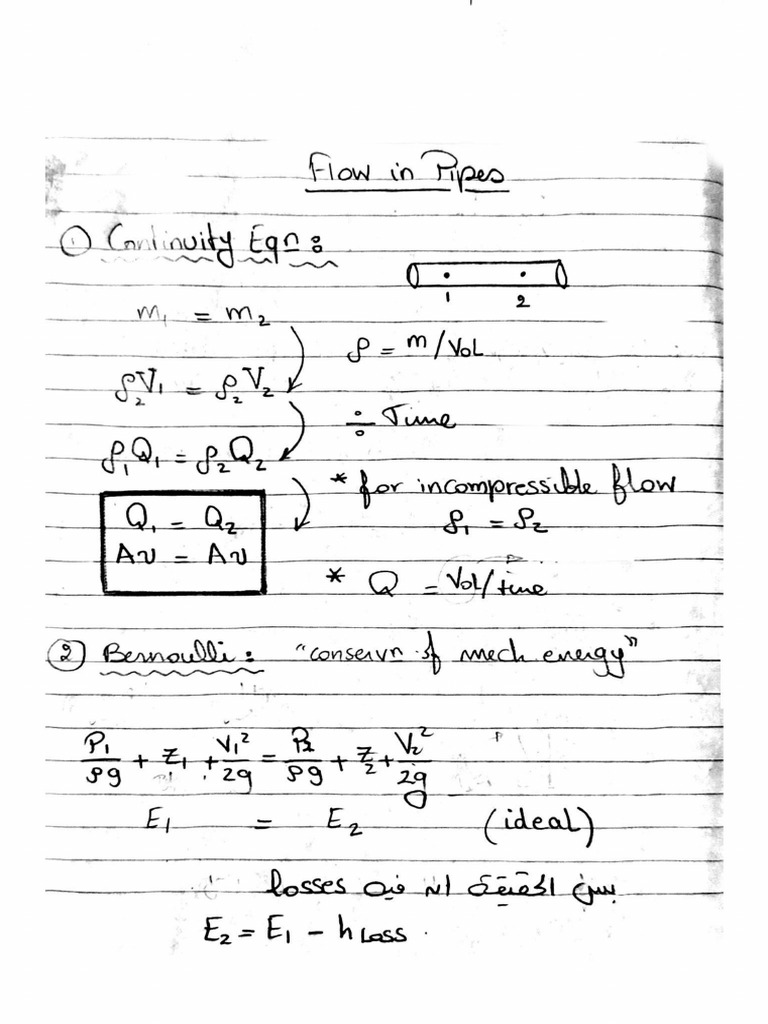 Flow in Pipes
① Continuity Eqn:
1 2
m₁ = m₂
ρ = m/Vol
ρ₂V₁ = ρ₂V₂
÷ Time
ρ₁Q₁ = ρ₂Q₂
* for incompressible flow
Q₁ = Q₂
ρ₁ = ρ₂
Av = Av
* Q = Vol/time
② Bernoulli: "conservn of mech energy"
P₁/ρg + z₁ + V₁²/2g = P₂/ρg + z₂ + V₂²/2g
E₁ = E₂ (ideal)
بس الحقيقة ان فيه losses
E₂ = E₁ - h Loss.